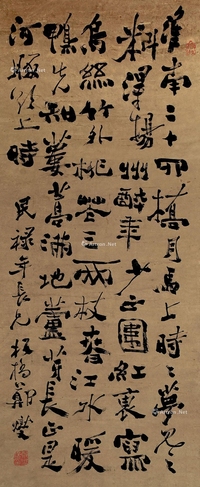 淮南二十四橋月馬上時時夢見之
料得揚州醉年少正圍紅袖寫
烏絲竹外桃花三兩枝春江水暖
鴨先知蔞蒿滿地蘆芽短正是
河豚欲上時
民祿年長兄 板橋鄭燮